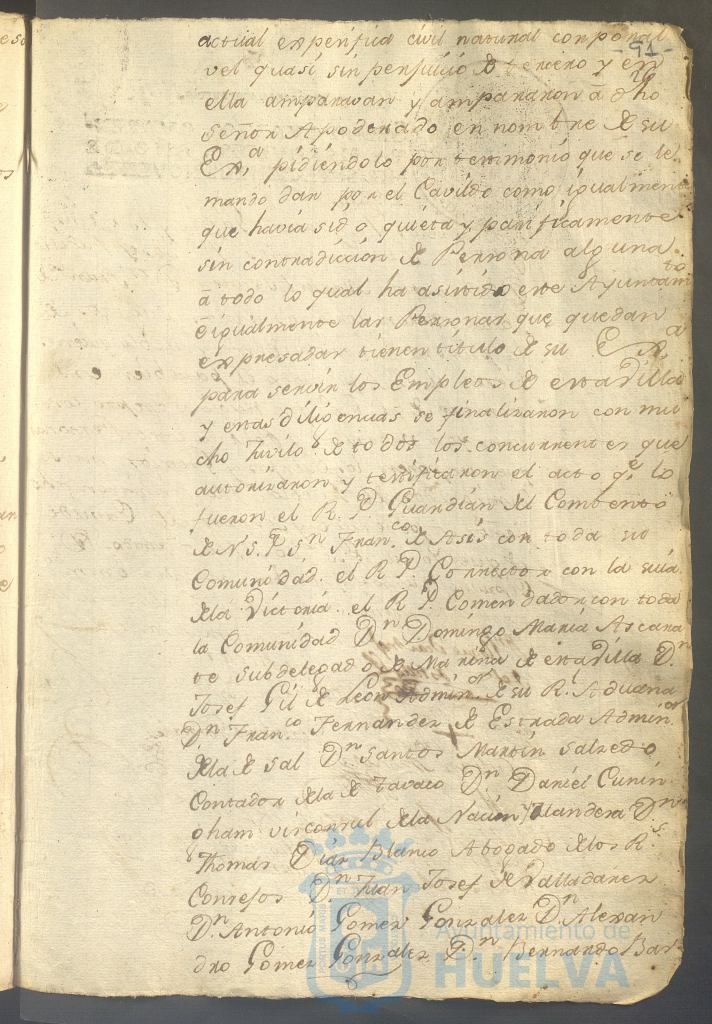 -91-
actual experifica civil natural corporal
vel quasi sin perjuicio de tercero y en
ella amparavan y ampararon â dho
señor Apoderado en nombre de su
Exª, pidiéndolo por testimonio que se le
mando dar por el Cavildo como igualmente
que havia sido quieta y pacificamente
sin contradicción de Persona alguna
â todo lo qual ha asistido este Ayuntamto
è igualmente las Personas que quedan
expresadas tienen titulo de su Exª
para servir los Empleos de esta Villa
y estas diligencias se finalizaron con mu
cho Juvilo de todos los concurrentes que
autorizaron y testificaron el acto qe lo
fueron el R. P. Guardian del Combento
de N. S. P. Sn Franco de Asis con toda su
Comunidad. el R. P. Corrector con la suia
de la Victoria. el R. P. Comendador con toda
la Comunidad Dn Domingo Maria Ascara
te subdelegado de Marina de esta Villa Dn
Josef Gil de Leon Adminor de su Rl Aduana
Dn Franco Fernandez de Estrada Adminor
de la de Sal Dn Santos Martin Salzedo
Contador de la de Tavaco Dn Daniel Cunin
oham visconsul de la Nacion Ylandera Dn
Thomas Diaz Blanco Abogado de los Rs
Consejos Dn Juan Josef de Valladares
Dn Antonio Gomez Gonzalez Dn Alexan
dro Gomez Gonzalez Dn Bernardo Bar
Ayuntamiento de
HUELVA